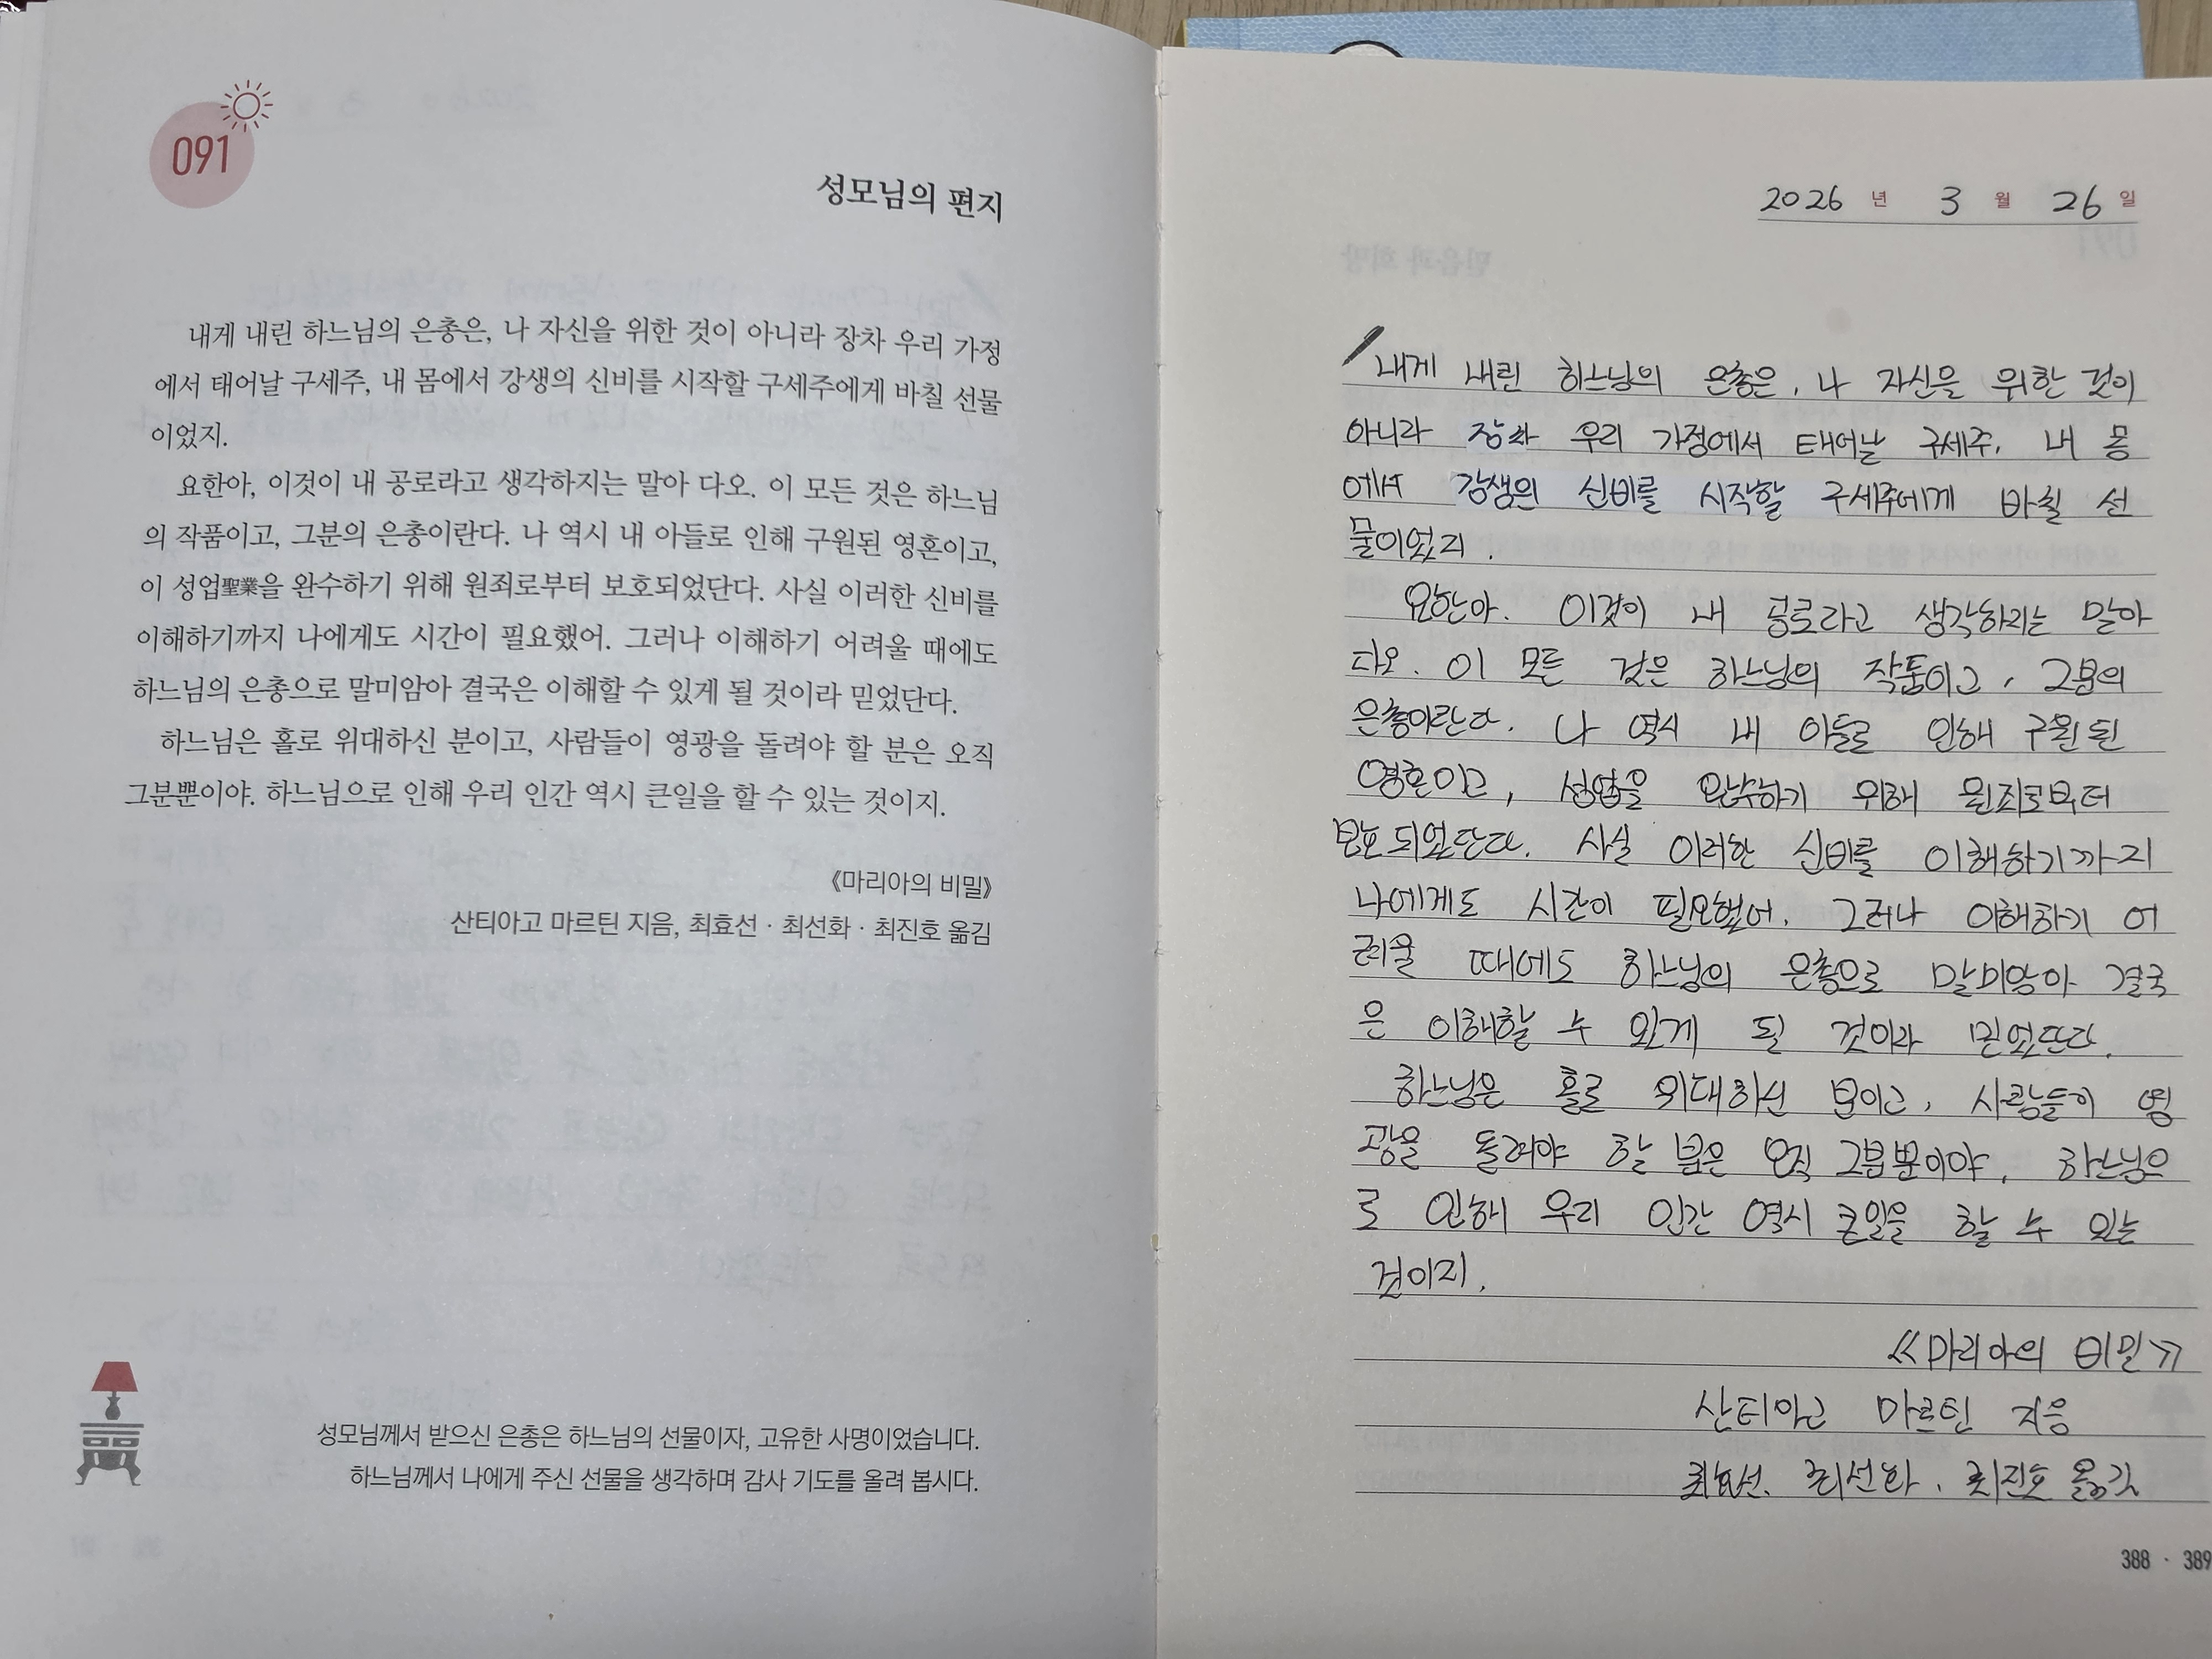 091
성모님의 편지
내게 내린 하느님의 은총은, 나 자신을 위한 것이 아니라 장차 우리 가정
에서 태어날 구세주, 내 몸에서 강생의 신비를 시작할 구세주에게 바칠 선물
이었지.
요한아, 이것이 내 공로라고 생각하지는 말아 다오. 이 모든 것은 하느님
의 작품이고, 그분의 은총이란다. 나 역시 내 아들로 인해 구원된 영혼이고,
이 성업聖業을 완수하기 위해 원죄로부터 보호되었단다. 사실 이러한 신비를
이해하기까지 나에게도 시간이 필요했어. 그러나 이해하기 어려울 때에도
하느님의 은총으로 말미암아 결국은 이해할 수 있게 될 것이라 믿었단다.
하느님은 홀로 위대하신 분이고, 사람들이 영광을 돌려야 할 분은 오직
그분뿐이야. 하느님으로 인해 우리 인간 역시 큰일을 할 수 있는 것이지.
《마리아의 비밀》
산티아고 마르틴 지음, 최효선 · 최선화 · 최진호 옮김
성모님께서 받으신 은총은 하느님의 선물이자, 고유한 사명이었습니다.
하느님께서 나에게 주신 선물을 생각하며 감사 기도를 올려 봅시다.
2026 년 3 월 26 일
내게 내린 하느님의 은총은, 나 자신을 위한 것이
아니라 장차 우리 가정에서 태어날 구세주, 내 몸
에서 강생의 신비를 시작할 구세주에게 바칠 선
물이었지.
요한아, 이것이 내 공로라고 생각하지는 말아
다오. 이 모든 것은 하느님의 작품이고, 그분의
은총이란다. 나 역시 내 아들로 인해 구원된
영혼이고, 성업을 완수하기 위해 원죄로부터
보호되었단다. 사실 이러한 신비를 이해하기까지
나에게도 시간이 필요했어. 그러나 이해하기 어
려울 때에도 하느님의 은총으로 말미암아 결국
은 이해할 수 있게 될 것이라 믿었단다.
하느님은 홀로 위대하신 분이고, 사람들이 영
광을 돌려야 할 분은 오직 그분뿐이야. 하느님으
로 인해 우리 인간 역시 큰일을 할 수 있는
것이지.
《마리아의 비밀》
산티아고 마르틴 지음
최효선. 최선화. 최진호 옮김
388 · 389